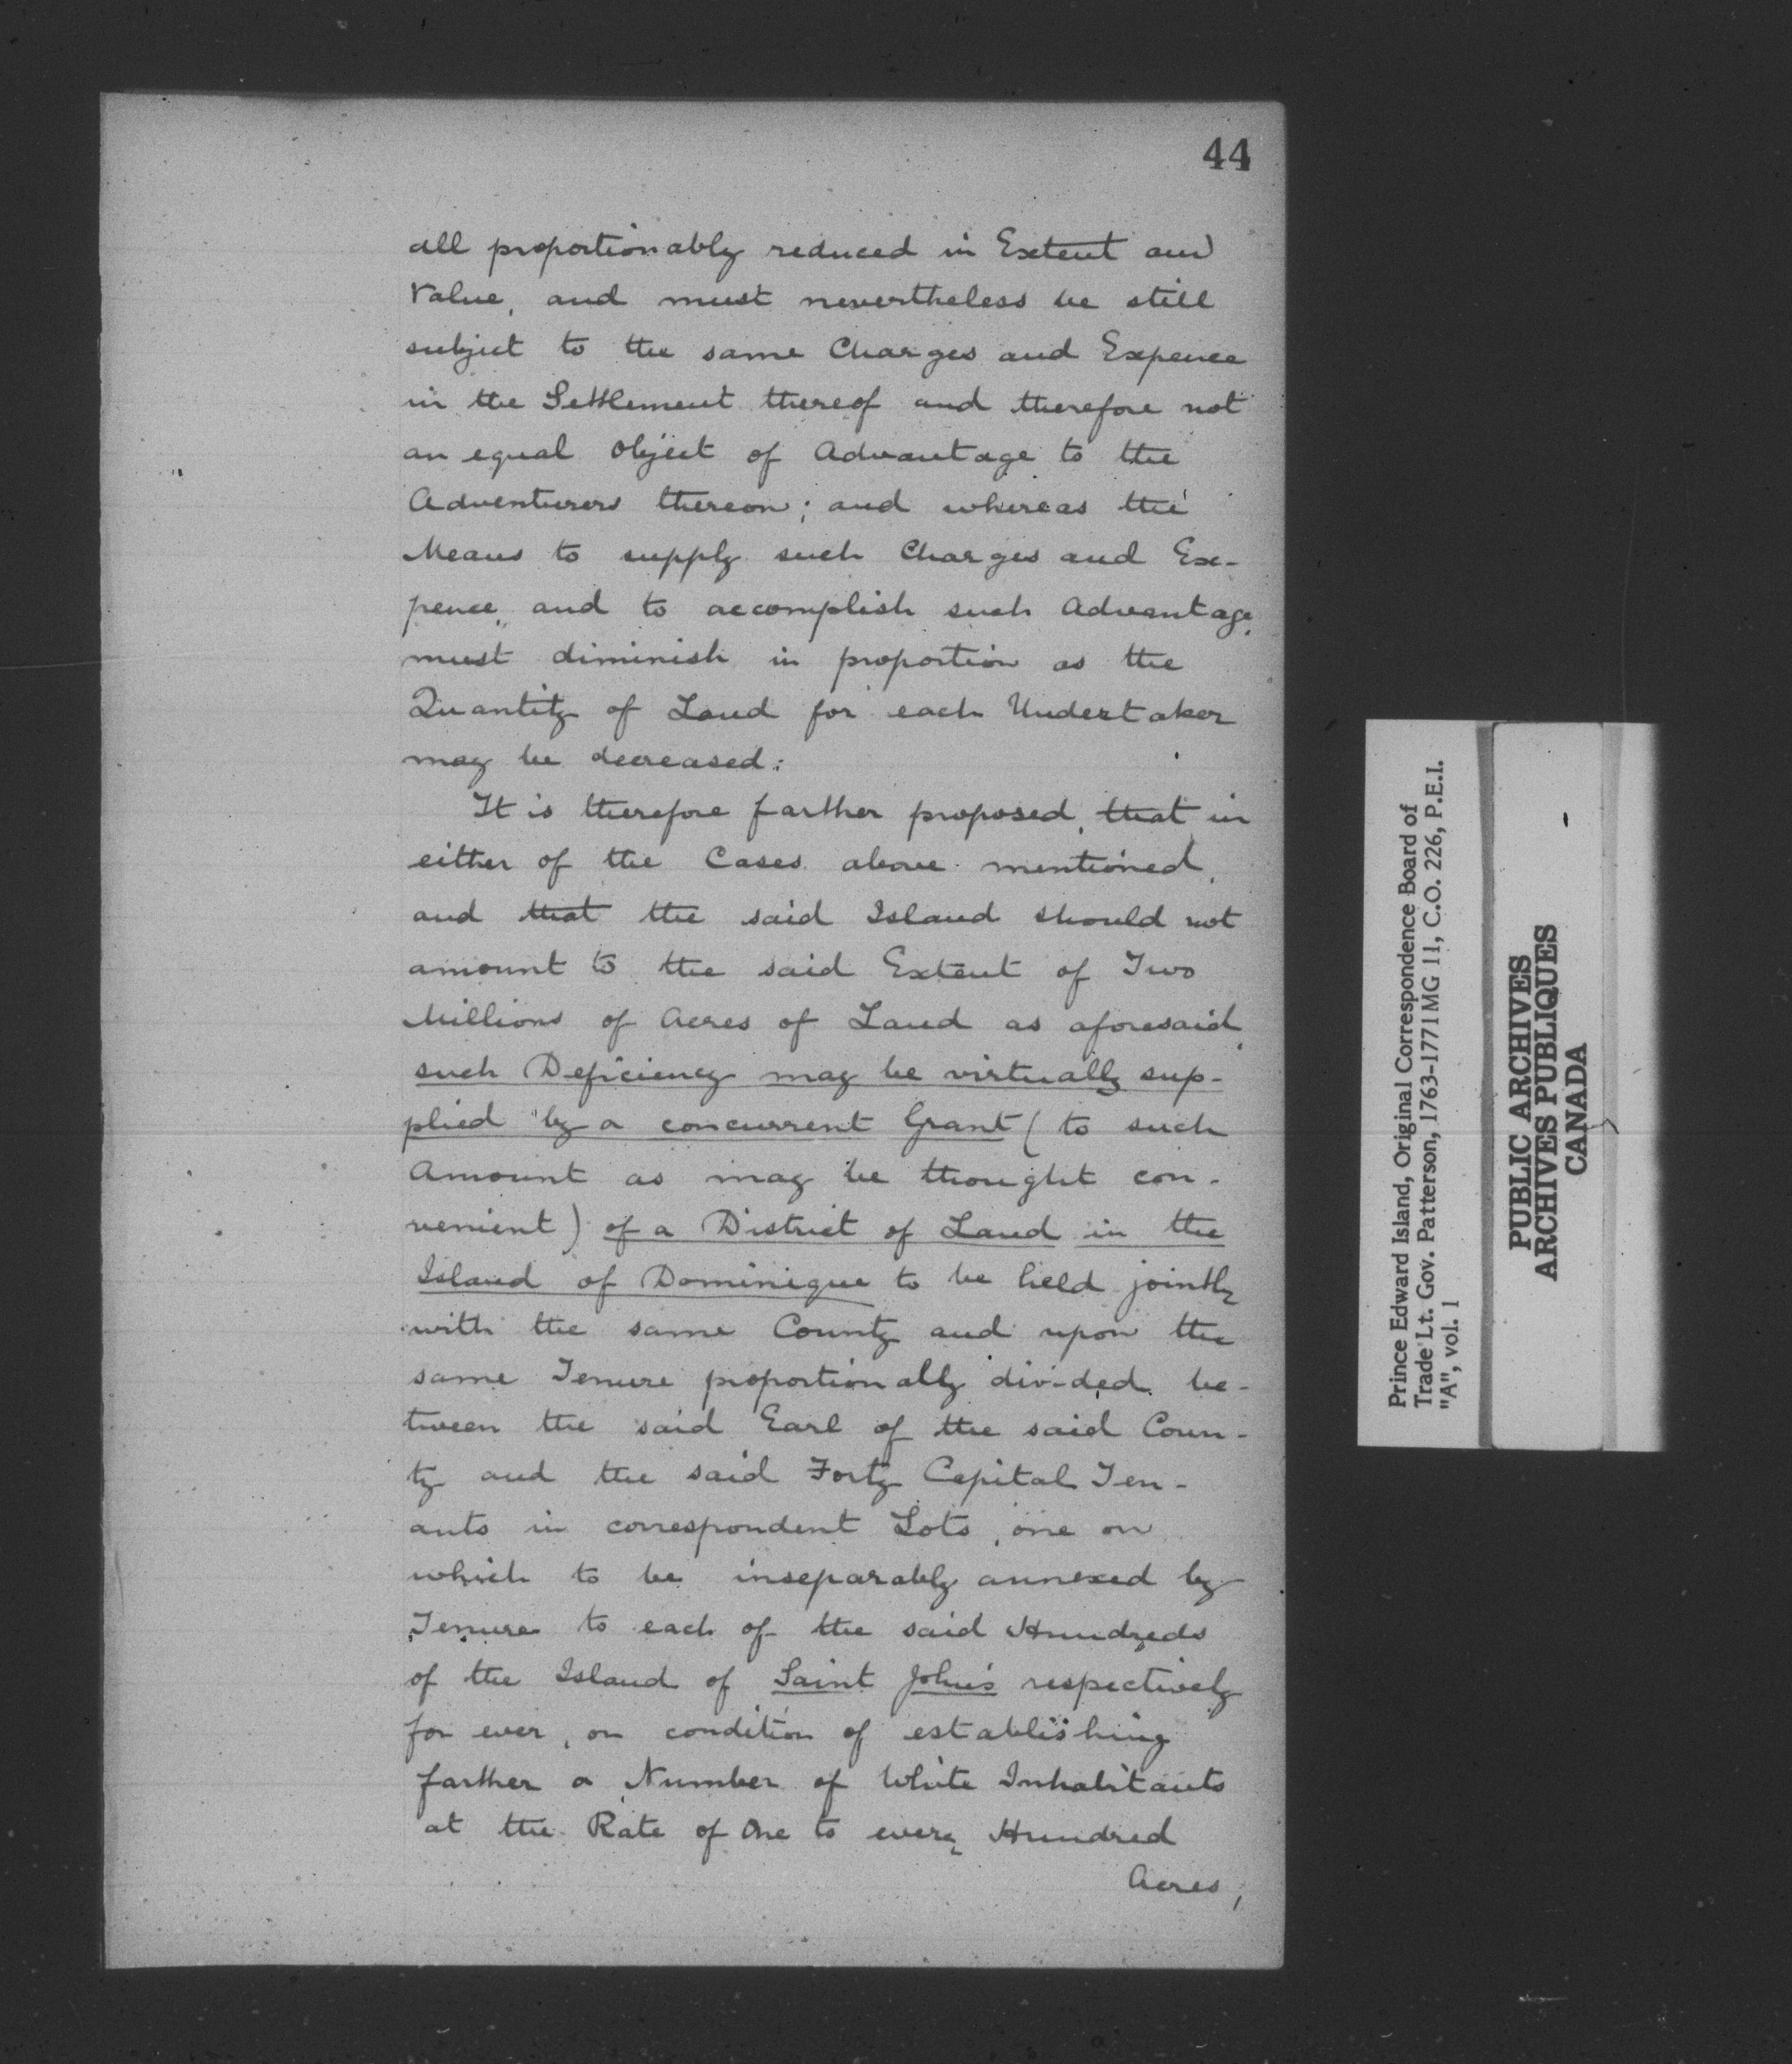 44
all proportionably reduced in Extent and
Value, and must nevertheless be still
subject to the same Charges and Expence
in the Settlement thereof and therefore not
an equal Object of Advantage to the
Adventurers thereon; and whereas the
Means to supply such Charges and Ex-
pence, and to accomplish such Advantage,
must diminish in proportion as the
Quantity of Land for each Undertaker
may be decreased:
It is therefore farther proposed, that in
either of the Cases above mentioned,
and that the said Island should not
amount to the said Extent of Two
Millions of Acres of Land as aforesaid,
such Deficiency may be virtually sup-
plied by a concurrent Grant (to such
Amount as may be thought con-
venient) of a District of Land in the
Island of Dominique to be held jointly
with the same County and upon the
same Tenure proportionally divided be-
tween the said Earl of the said Coun-
ty and the said Forty Capital Ten-
ants in correspondent Lots, one on
which to be inseparably annexed by
Tenure to each of the said Hundreds
of the Island of Saint John's respectively
for ever, on condition of establishing
farther a Number of White Inhabitants
at the Rate of One to every Hundred
Acres,
Prince Edward Island, Original Correspondence Board of
Trade Lt. Gov. Patterson, 1763-1771 MG 11, C.O. 226, P.E.I.
"A", vol. 1
PUBLIC ARCHIVES
ARCHIVES PUBLIQUES
CANADA